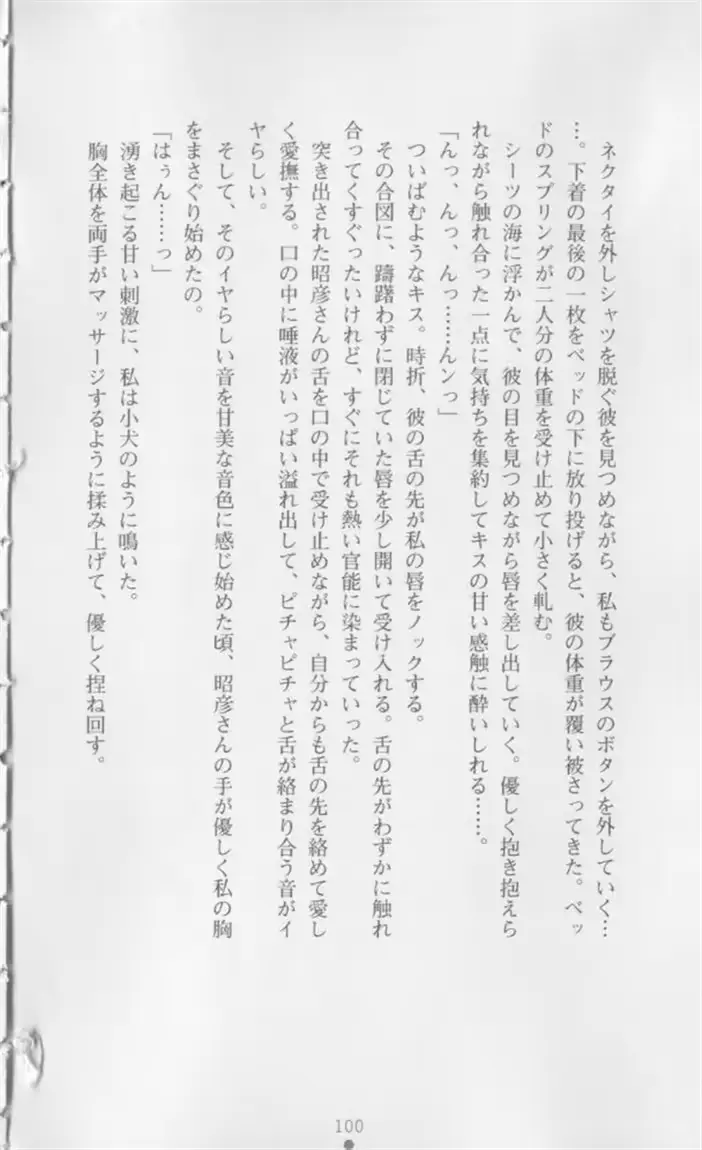 ネクタイを外しシャツを脱ぐ彼を見つめながら、私もブラウスのボタンを外していく…
…。下着の最後の一枚をベッドの下に放り投げると、彼の体重が覆い被さってきた。ベッ
ドのスプリングが二人分の体重を受け止めて小さく軋む。
　シーツの海に浮かんで、彼の目を見つめながら唇を差し出していく。優しく抱き抱えら
れながら触れ合った一点に気持ちを集約してキスの甘い感触に酔いしれる……。
「んっ、んっ、んっ……んンっ」
　ついばむようなキス。時折、彼の舌の先が私の唇をノックする。
　その合図に、躊躇わずに閉じていた唇を少し開いて受け入れる。舌の先がわずかに触れ
合ってくすぐったいけれど、すぐにそれも熱い官能に染まっていった。
　突き出された昭彦さんの舌を口の中で受け止めながら、自分からも舌の先を絡めて愛し
く愛撫する。口の中に唾液がいっぱい溢れ出して、ピチャピチャと舌が絡まり合う音がイ
ヤらしい。
　そして、そのイヤらしい音を甘美な音色に感じ始めた頃、昭彦さんの手が優しく私の胸
をまさぐり始めたの。
「はぅん……っ」
　湧き起こる甘い刺激に、私は小犬のように鳴いた。
　胸全体を両手がマッサージするように揉み上げて、優しく捏ね回す。
100